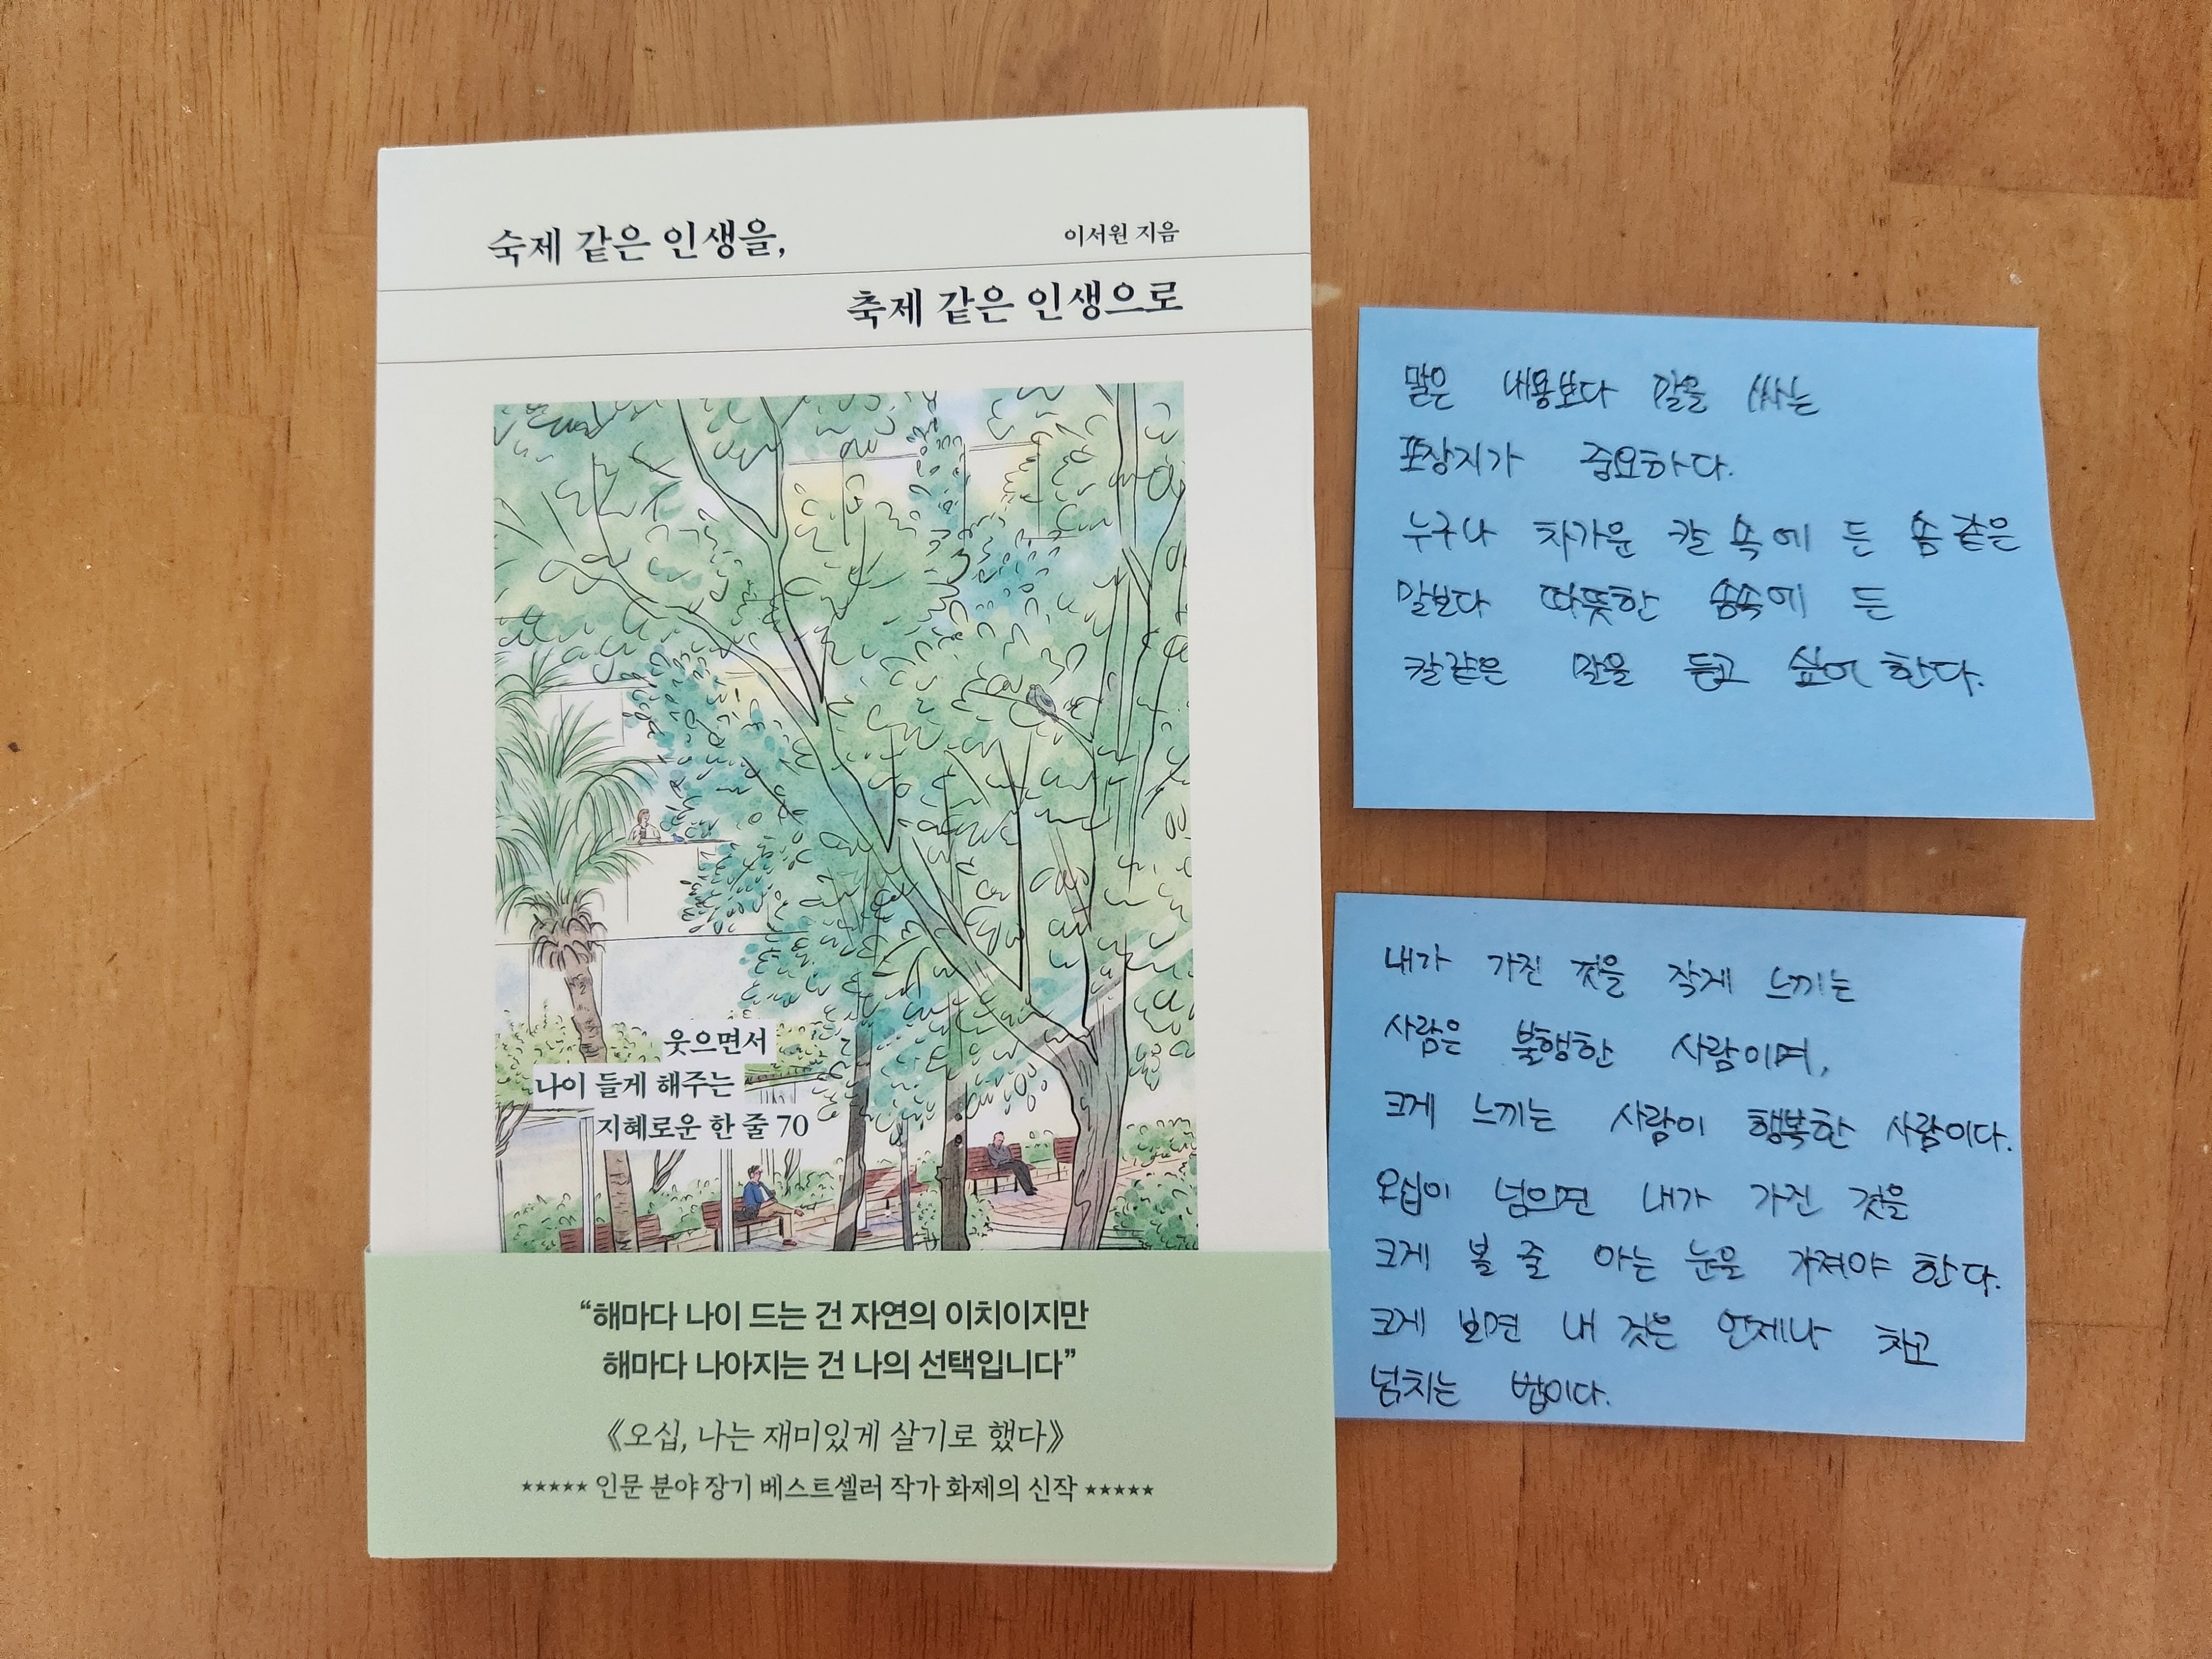 숙제 같은 인생을,
이서원 지음
축제 같은 인생으로
웃으면서
나이 들게 해주는
지혜로운 한 줄 70
“해마다 나이 드는 건 자연의 이치이지만
해마다 나아지는 건 나의 선택입니다”
《오십, 나는 재미있게 살기로 했다》
★★★★★ 인문 분야 장기 베스트셀러 작가 화제의 신작 ★★★★★
말은 내용보다 말을 싸는
포장지가 중요하다.
누구나 차가운 칼 속에 든 솜 같은
말보다 따뜻한 솜속에 든
칼같은 말을 듣고 싶어 한다.
내가 가진 것을 작게 느끼는
사람은 불행한 사람이며,
크게 느끼는 사람이 행복한 사람이다.
오십이 넘으면 내가 가진 것을
크게 볼 줄 아는 눈을 가져야 한다.
크게 보면 내 것은 언제나 차고
넘치는 법이다.